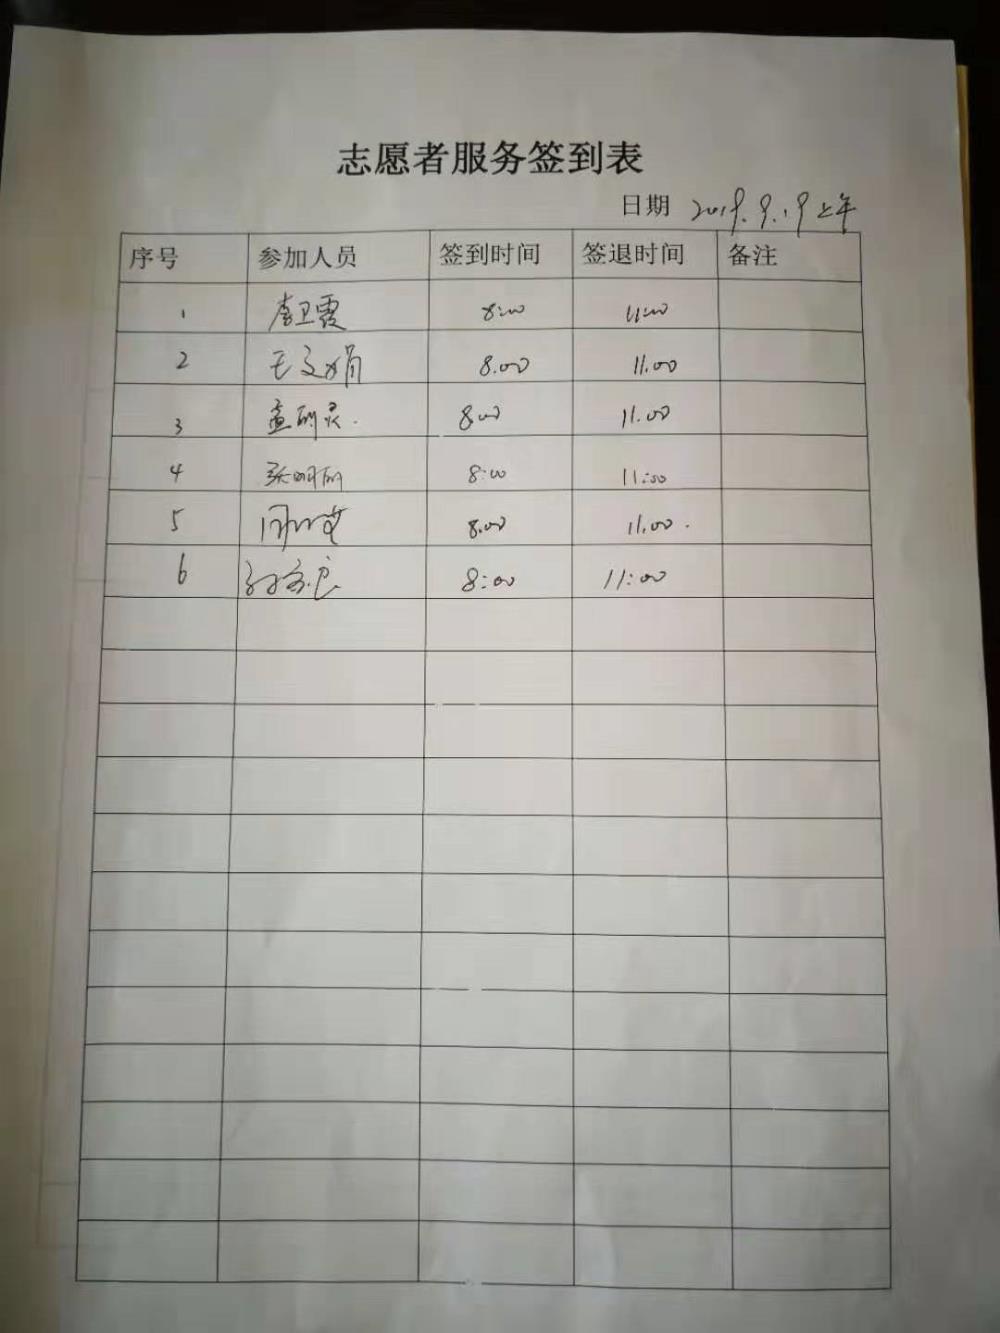 志愿者服务签到表
日期 2019.9.19上午
序号 参加人员 签到时间 签退时间 备注
1 李卫霞 8:00 11:00
2 王文娟 8.00 11.00
3 8:00 11.00
4 张明丽 8:00 11:00
5 8.00 11.00.
6 8:00 11:00